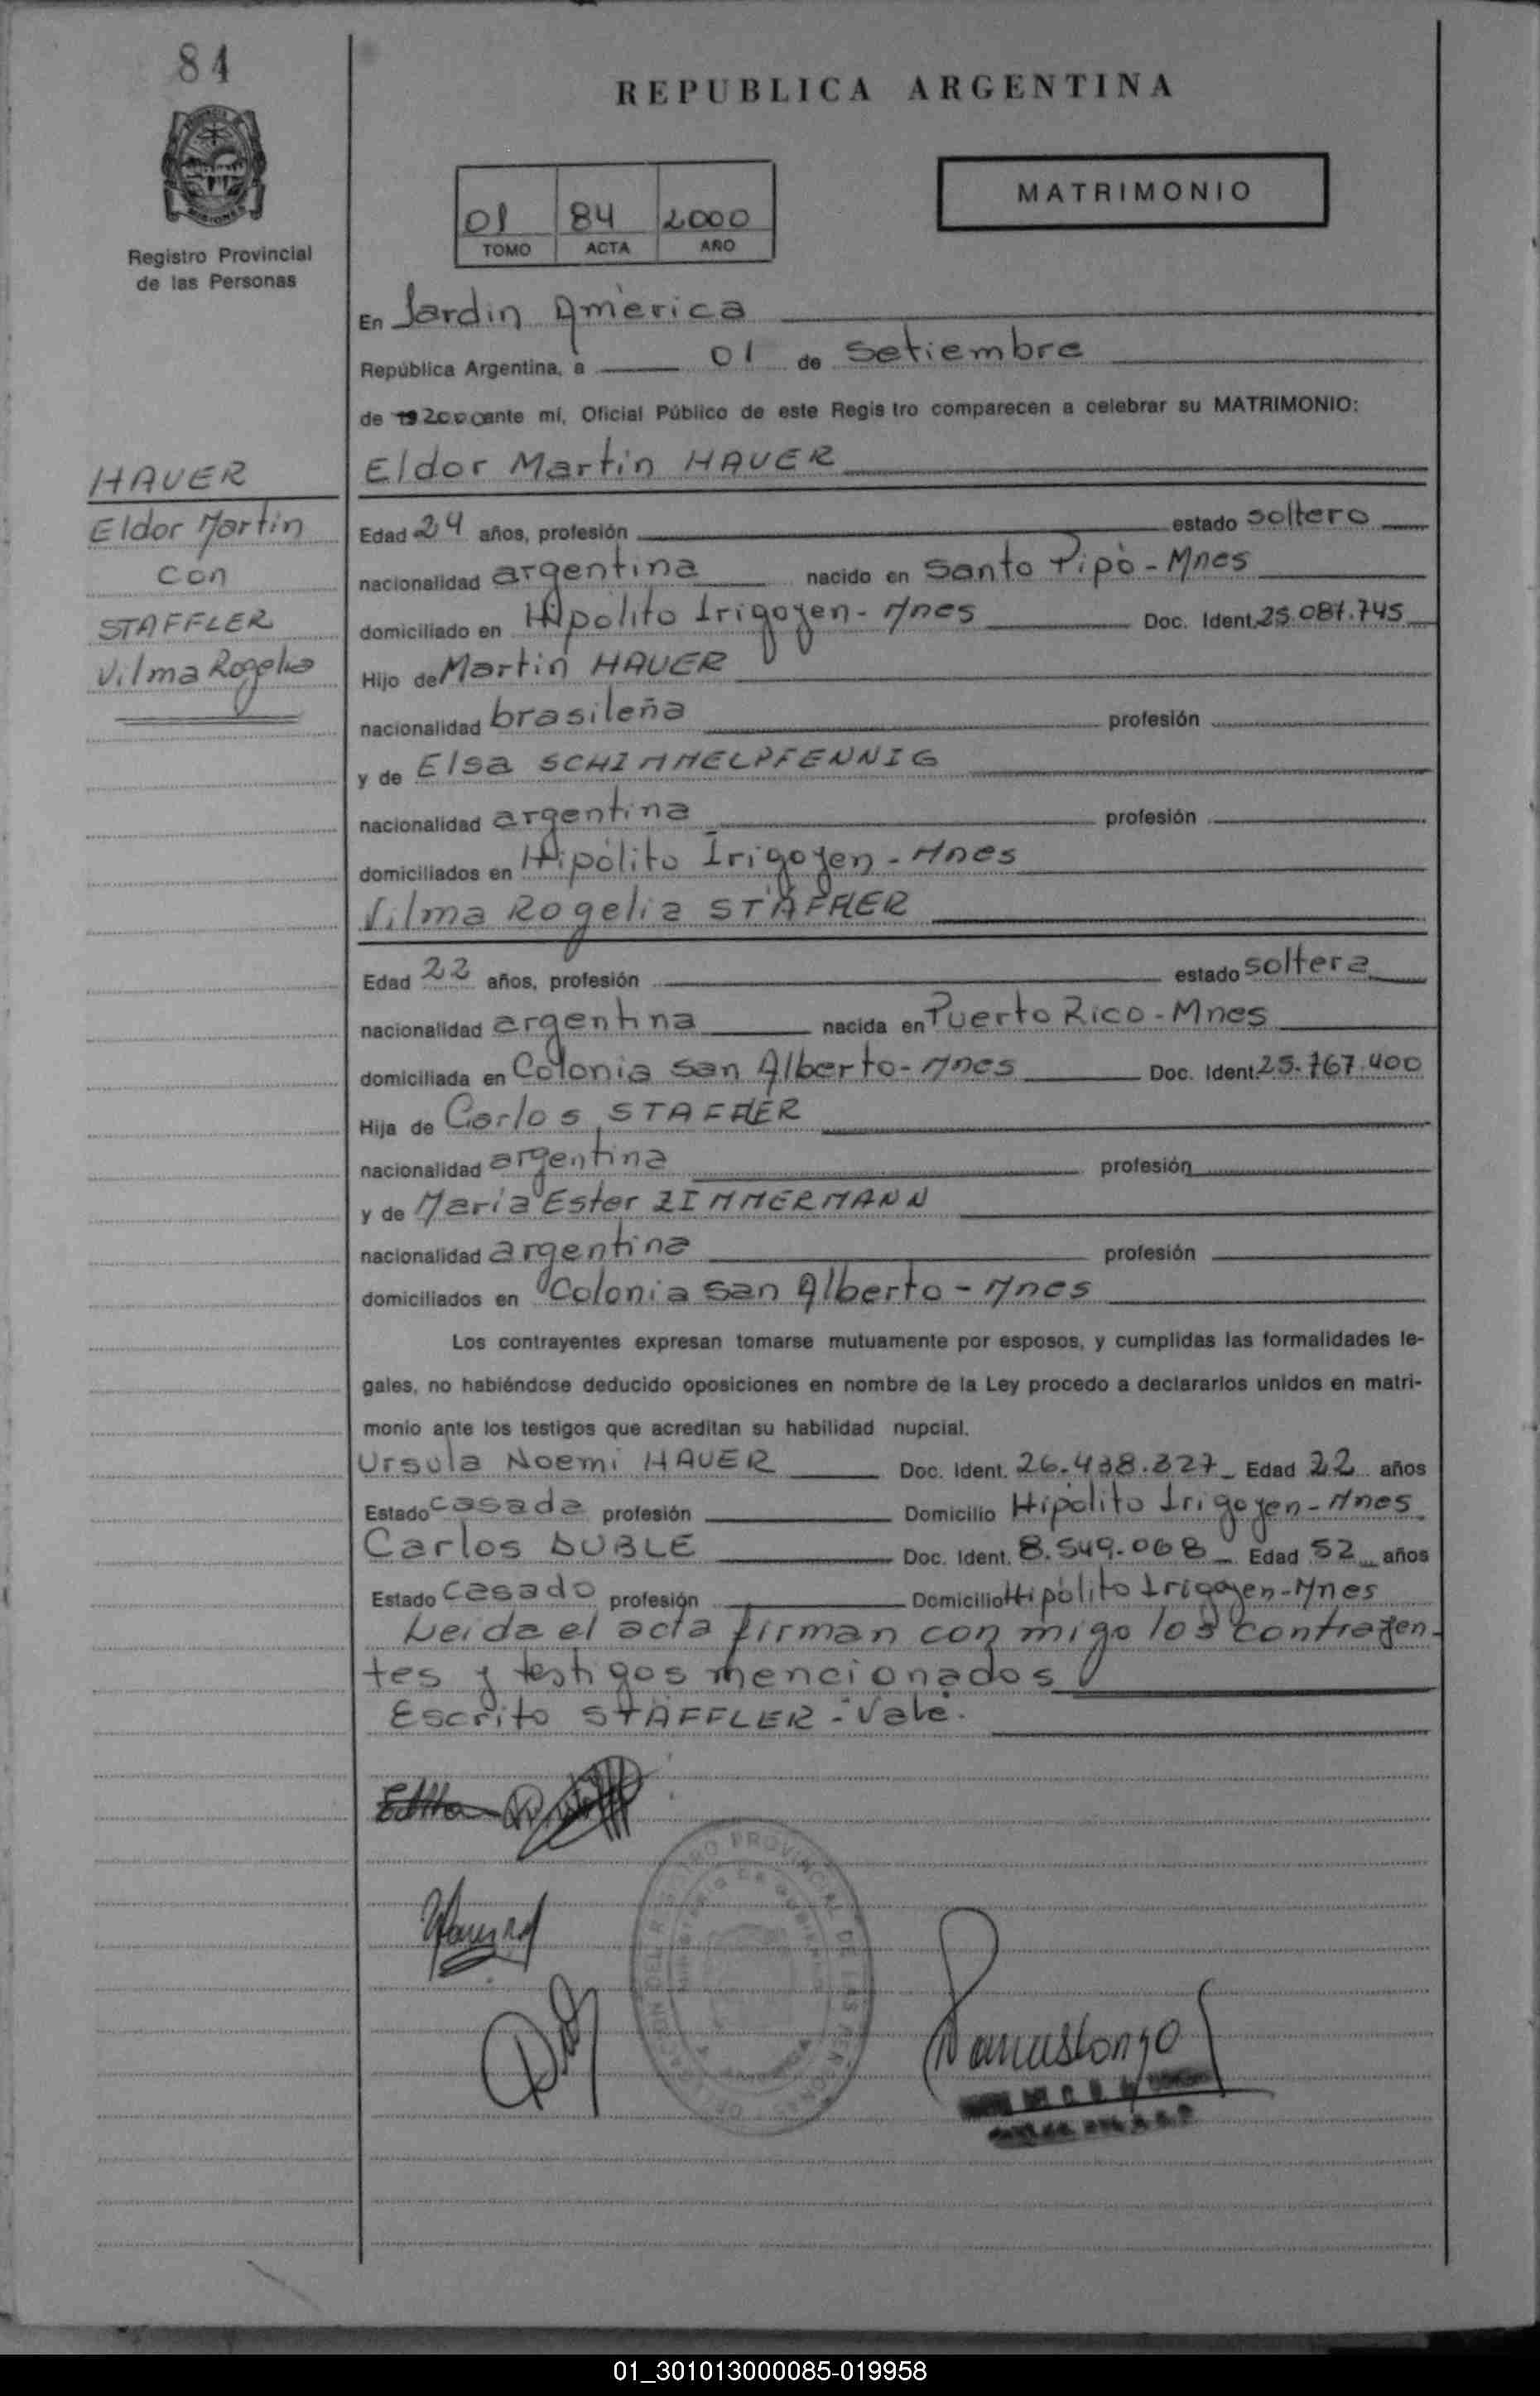 84
REPUBLICA ARGENTINA
MATRIMONIO
01 84 2000
TOMO ACTA AÑO
Registro Provincial
de las Personas
En Jardin América
República Argentina, a 01 de Setiembre
de 19 2000 ante mí, Oficial Público de este Regis tro comparecen a celebrar su MATRIMONIO:
HAUER
Eldor Martin
con
STAFFLER
Vilma Rogelia
Eldor Martin HAUER
Edad 24 años, profesión estado soltero
nacionalidad argentina nacido en Santo Pipó - Mnes
domiciliado en Hipólito Irigoyen - Mnes Doc. Ident. 25.087.745
Hijo de Martin HAUER
nacionalidad brasileña profesión
y de Elsa SCHIMMELPFENNIG
nacionalidad argentina profesión
domiciliados en Hipólito Irigoyen - Mnes
Vilma Rogelia STAFFLER
Edad 22 años, profesión estado soltera
nacionalidad argentina nacida en Puerto Rico - Mnes
domiciliada en Colonia San Alberto - Mnes Doc. Ident. 25.767.400
Hija de Carlos STAFFLER
nacionalidad argentina profesión
y de Maria Ester ZIMMERMANN
nacionalidad argentina profesión
domiciliados en Colonia San Alberto - Mnes
Los contrayentes expresan tomarse mutuamente por esposos, y cumplidas las formalidades le-
gales, no habiéndose deducido oposiciones en nombre de la Ley procedo a declararlos unidos en matri-
monio ante los testigos que acreditan su habilidad nupcial.
Ursula Noemi HAUER Doc. Ident. 26.438.327 Edad 22 años
Estado casada profesión Domicilio Hipólito Irigoyen - Mnes
Carlos DUBLE Doc. Ident. 8.549.068 Edad 52 años
Estado casado profesión Domicilio Hipólito Irigoyen - Mnes
Leida el acta firman con migo los contrayen-
tes y testigos mencionados
Escrito STAFFLER - Vale.
01_301013000085-019958